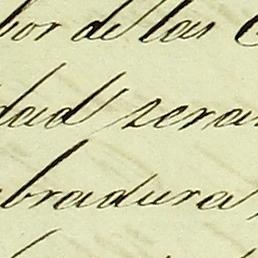 bor de las
dad seran
bradura